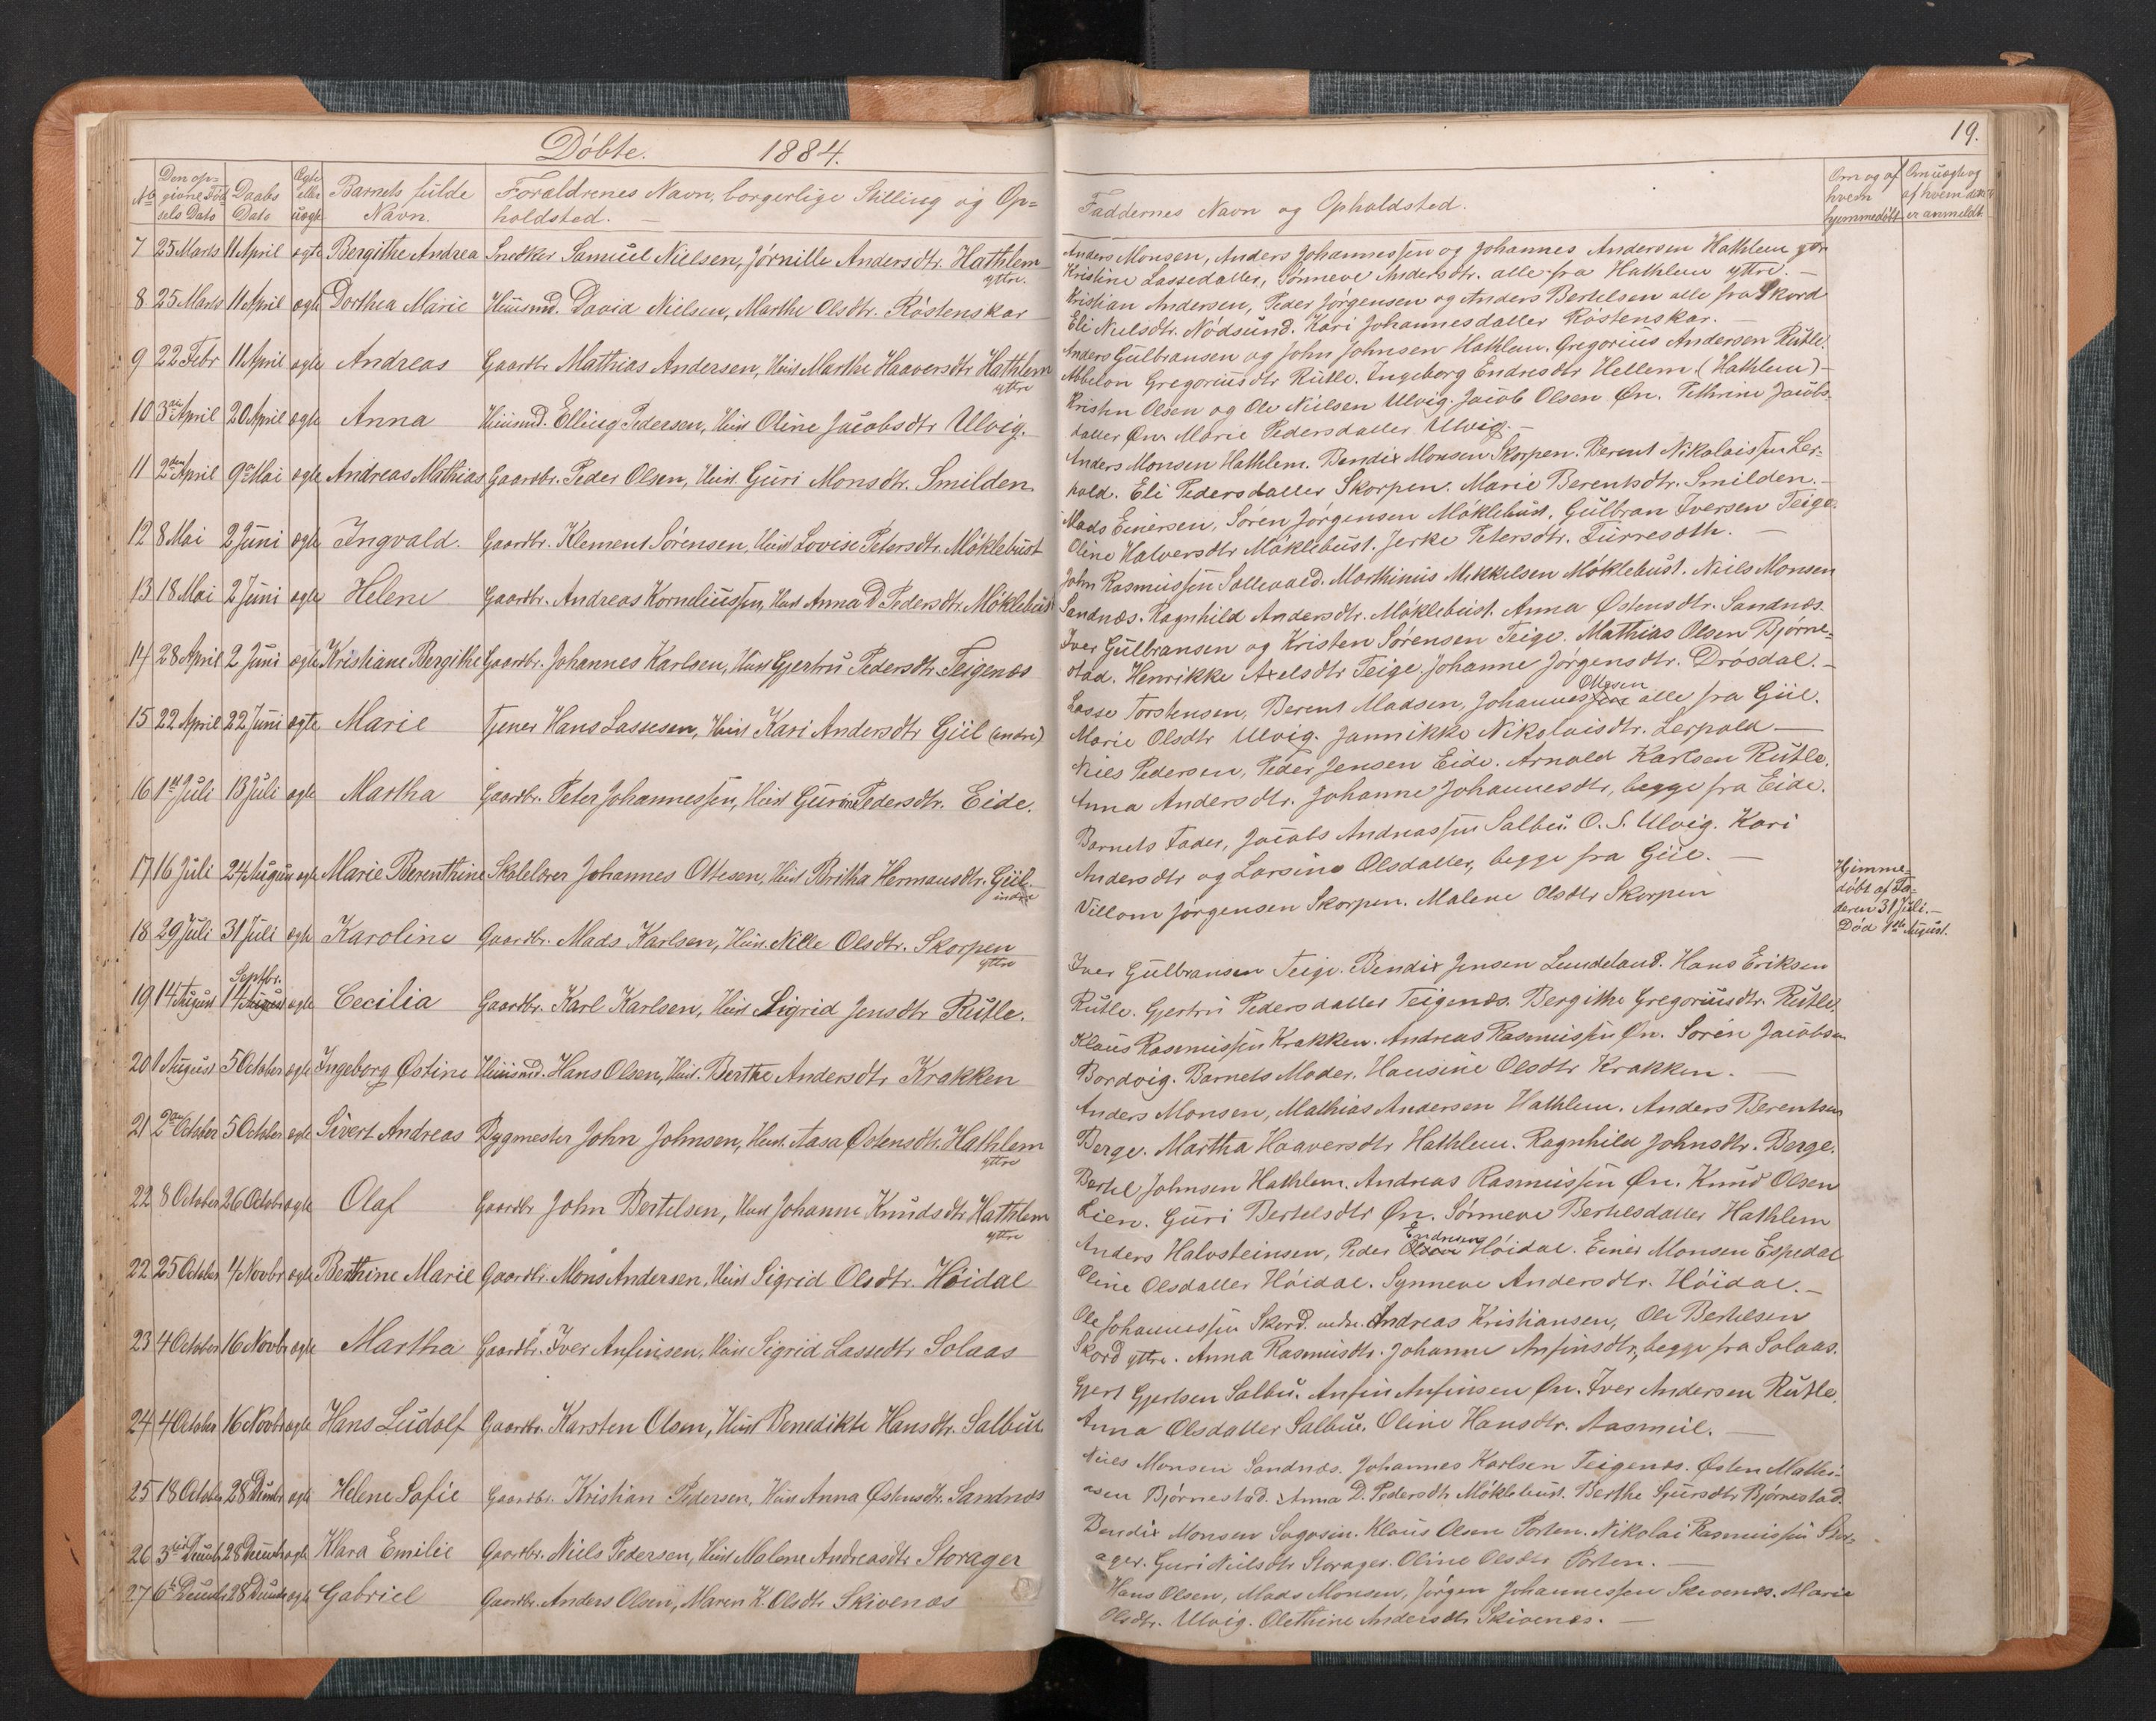 Döbte. 1884.
No
Den op-
givne Föd
sels Dato
Daabs
Dato
Ægte
eller
uægte
Barnets fulde
Navn.
Forældrenes Navn, borgerlige Stilling og Op-
holdsted.
7 25 Marts 11 April ægte Bergithe Andrea Snedker Samuel Nielsen, Jörnille Andersdtr. Hathlem
yttre.
8 25 Marts 11 April ægte Dorthea Marie Huusmd. David Nielsen, Marthe Olsdtr. Röstenskar
9 22 Febr 11 April ægte Andreas Gaardbr. Mathias Andersen, Hust Marthe Haaversdtr Hathlem
yttre
10 3die April 20 April ægte Anna Huusmd. Elling Pedersen, Hust Oline Jacobsdtr Ulvig.
11 2den April 9de Mai ægte Andreas Mathias Gaardbr. Peder Olsen, Hust. Guri Monsdtr. Smilden
12 8 Mai 2 Juni ægte Ingvald. Gaardbr. Klement Sörensen, Hust Lovise Petersdtr. Möklebust
13 18 Mai 2 Juni ægte Helene Gaardbr. Andreas Korneliussen, Hust Anna D Pedersdtr. Möklebust
14 28 April 2 Juni ægte Kristiane Bergithe Gaardbr. Johannes Karlsen, Hust Gjertru Pedersdtr. Teigenæs
15 22 April 22 Juni ægte Marie Tjener Hans Lassesen, Hust Kari Andersdtr Giil (indre)
16 1st Juli 13 Juli ægte Martha Gaardbr. Peter Johannessen, Hust Gurine Pedersdtr. Eide.
17 16 Juli 24 August ægte Marie Berenthine Skolelærer Johannes Ottesen, Hust Britha Hermansdtr. Giil
indre
18 29 Juli 31 Juli ægte Karoline Gaardbr. Mads Karlsen, Hust. Nille Olsdtr. Skorpen
yttre
Septbr.
19 14 August 14 August ægte Cecilia Gaardbr. Karl Karlsen, Hust Sigrid Jensdtr Rutle.
20 1 August 5 October ægte Ingeborg Østine Huusmd. Hans Olsen, Hust. Berthe Andersdtr Krakken
21 2den October 5 October ægte Sivert Andreas Bygmester John Johnsen, Hust. Aasa Østensdtr. Hathlem
yttre
22 8 October 26 Octobr ægte Olaf Gaardbr John Bertelsen, Hust Johanne Knudsdtr Hathlem
yttre
22 25 October 4 Novbr ægte Berthine Marie Gaardbr. Mons Andersen, Hust Sigrid Olsdtr. Höidal
23 4 October 16 Novbr ægte Martha Gaardbr. Iver Anfinsen, Hust Sigrid Lassedtr Solaas
24 4 October 16 Novbr ægte Hans Ludolf Gaardbr. Karsten Olsen, Hust Benedikte Hansdtr. Salbu
25 18 October 28 Decembr ægte Helene Sofie Gaardbr. Kristian Pedersen, Hust Anna Østensdtr. Sandnæs
26 3die Decembr 28 Decembr ægte Klara Emilie Gaardbr. Niels Pedersen, Hust Malene Andreasdtr Storager
27 6te Decembr 28 Decembr ægte Gabriel Gaardbr. Anders Olsen, Maren K. Olsdtr Skivenæs
19.
Faddernes Navn og Opholdsted.
Om og af
hvem
hjemmedöbt
Om uægte og
af hvem dette
er anmeldt
Anders Monsen, Anders Johannessen og Johannes Andersen Hathlem yttre
Kristine Lassedatter, Sönneve Andersdtr. alle fra Hathlem yttre.
Kristian Andersen, Peder Jörgensen og Anders Bertelsen alle fra Skord
Eli Nielsdtr. Nödsund. Kari Johannesdatter Röstenskar.
Anders Gulbransen og John Johnsen Hathlem. Gregorius Andersen Rutle.
Abbelon Gregoriusdtr Rutle. Ingeborg Endresdtr Hellem (Hathlem)
Kristen Olsen og Ole Nielsen Ulvig. Jacob Olsen Øn. Pethrine Jacobs-
datter Øn. Marie Pedersdatter Ulvig.
Anders Monsen Hathlem. Bendix Monsen Skorpen. Berent Nikolaissen Ler-
pold. Eli Pedersdatter Skorpen. Marie Berentsdtr. Smilden.
Mads Einersen, Sören Jörgensen Möklebust. Gulbran Iversen Teige.
Oline Halversdtr Möklebust. Jerke Petersdtr. Turresdth.
John Rasmussen Sollevold. Marthinus Mikkelsen Möklebust. Niels Monsen
Sandnæs. Ragnhild Andersdtr. Möklebust. Anna Østensdtr. Sandnæs.
Iver Gulbransen og Kristen Sörensen Teige. Mathias Olsen Bjørne-
stad. Henrikke Axelsdtr Teige, Johanne Jörgensdtr. Drösdal.
Ottesen
Lasse Torstensen, Berent Madsen, Johannes alle fra Giil.
Marie Olsdtr Ulvig. Jannikke Nikolaisdtr. Lerpold
Niels Pedersen, Peder Jensen Eide. Arnold Karlsen Rutle.
Anna Andersdtr. Johanne Johannesdtr, begge fra Eide.
Barnets Fader, Jacob Andreassen Salbu. O. S. Ulvig. Kari
Andersdtr og Larsine Olsdatter, begge fra Giil.
Villom Jörgensen Skorpen. Malene Olsdtr Skorpen
Hjemme-
döbt af Fa-
deren 31 Juli.
Död 1ste August.
Iver Gulbransen Teige. Bendix Jensen Lundeland. Hans Eriksen
Rutle. Gjertru Pedersdatter Teigenæs. Bergithe Gregoriusdtr. Rutle.
Klaus Rasmussen Krakken. Andreas Rasmussen Øn. Sören Jacobsen
Bordvig. Barnets Moder. Hansine Olsdtr Krakken.
Anders Monsen, Mathias Andersen Hathlem. Anders Berentsen
Berge. Martha Haaversdtr Hathlem. Ragnhild Johnsdtr. Berge.
Bertel Johnsen Hathlem. Andreas Rasmussen Øn. Knud Olsen
Lien. Guri Bertelsdtr Øn. Sönneve Bertelsdatter Hathlem
Endresen
Anders Halvsteinsen, Peder Olsen Höidal. Einer Monsen Espedal
Oline Olsdatter Höidal. Synneve Andersdtr. Höidal.
Ole Johannessen Skord indre. Andreas Kristiansen, Ole Bertelsen
Skord yttre. Anna Rasmusdtr. Johanne Anfinsdtr, begge fra Solaas.
Gjert Gjertsen Salbu. Anfin Anfinsen Øn. Iver Andersen Rutle.
Anna Olsdatter Salbu. Oline Hansdtr. Aasmul.
Niels Monsen Sandnæs. Johannes Karlsen Teigenæs. Østen Mathi-
asen Bjørnestad. Anna D. Pedersdtr Möklebust. Berthe Sjursdtr Bjørnestad.
Bendix Monsen Sogosin. Klaus Olsen Porten. Nikolai Rasmussen Stor-
ager. Guri Nielsdtr Storager. Oline Olsdtr Porten.
Hans Olsen, Mads Monsen, Jörgen Johannessen Skivenæs. Marie
Olsdtr. Ulvig. Olethine Andersdtr Skivenæs.